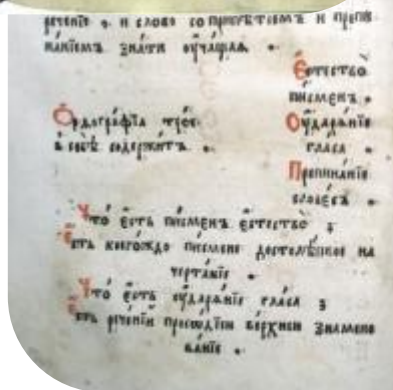 речение , и слово со
нїемъ знати оучащаѧ .
Ѻрдогра́фїа трое
в себѣ содержитъ .
Е҆стество̀
писменъ .
Оу҆даре́нїе
гласа .
Препинанїе
слове́съ .
Что̀ е҆сть писменъ е҆стество̀ ;
Е҆сть коегождо писмене на
чертанїе .
Что̀ е҆сть оу҆даре́нїе гласа ;
Е҆сть рече́нїи просодїею ве́рхнею знамено
ва́нїе .